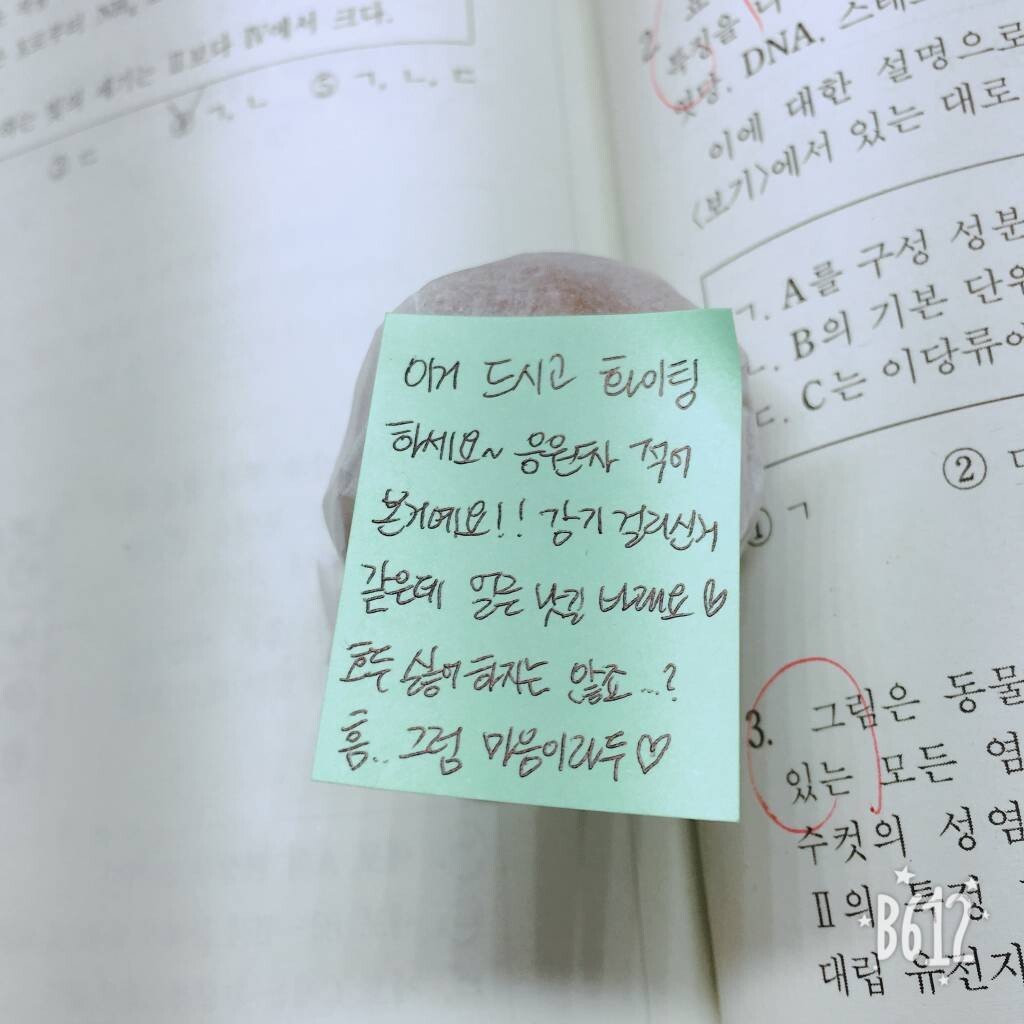 보다 Ⅳ에서 크다.
③ ㄷ
ㄱ, ㄴ
⑤ ㄱ, ㄴ, ㄷ
2.
특징을 나
DNA, 스테로
이에 대한 설명으로
<보기>에서 있는 대로
ㄱ. A를 구성 성분
ㄴ. B의 기본 단위
ㄷ. C는 이당류에
① ㄱ
②
이거 드시고 화이팅
하세요~ 응원차 적어
본거예요!! 감기 걸리신거
같은데 얼른 낫길 바래요♡
호두 싫어 하자는 않죠...?
흠.. 그럼 마음이라두♡
3. 그림은 동물
있는 모든 염
수컷의 성염
Ⅱ의 특정
대립 유전자
B612